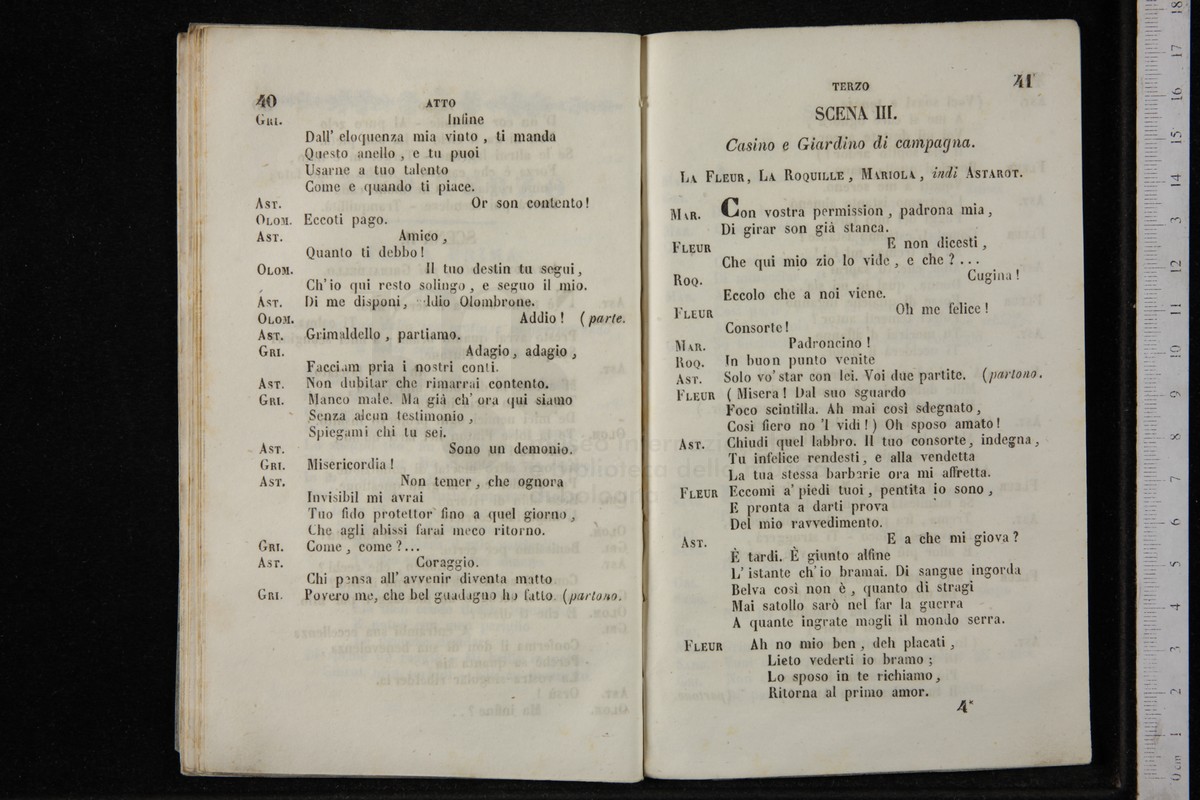 40
ATTO
GRI. Infine
Dall' eloquenza mia vinto , ti manda
Questo anello , e tu puoi
Usarne a tuo talento
Come e quando ti piace.
AST. Or son contento!
OLOM. Eccoti pago.
AST. Amico ,
Quanto ti debbo!
OLOM. Il tuo destin tu segui,
Ch' io qui resto solingo , e seguo il mio.
AST. Di me disponi, ddio Olombrone.
OLOM. Addio! (parte.
AST. Grimaldello , partiamo.
GRI. Adagio, adagio ,
Facciam pria i nostri conti.
AST. Non dubitar che rimarrai contento.
GRI. Manco male. Ma già ch' ora qui siamo
Senza alcun testimonio ,
Spiegami chi tu sei.
AST. Sono un demonio.
GRI. Misericordia!
AST. Non temer, che ognora
Invisibil mi avrai
Tuo fido protettor fino a quel giorno,
Che agli abissi farai meco ritorno.
GRI. Come, come?...
AST. Coraggio.
Chi pensa all' avvenir diventa matto
GRI. Povero me, che bel guadagno ho fatto. (partono.
TERZO
41
SCENA III.
Casino e Giardino di campagna.
LA FLEUR, LA ROQUILLE, MARIOLA, indi ASTAROT.
MAR. Con vostra permission, padrona mia,
Di girar son già stanca.
FLEUR E non dicesti,
Che qui mio zio lo vide, e che? ...
ROQ. Cugina!
Eccolo che a noi viene.
FLEUR Oh me felice!
Consorte!
MAR. Padroncino!
ROQ. In buon punto venite
AST. Solo vo' star con lei. Voi due partite. (partono.
FLEUR ( Misera! Dal suo sguardo
Foco scintilla. Ah mai così sdegnato,
Così fiero no 'l vidi!) Oh sposo amato!
AST. Chiudi quel labbro. Il tuo consorte, indegna,
Tu infelice rendesti, e alla vendetta
La tua stessa barbarie ora mi affretta.
FLEUR Eccomi a' piedi tuoi, pentita io sono,
E pronta a darti prova
Del mio ravvedimento.
AST. E a che mi giova?
È tardi. È giunto alfine
L' istante ch' io bramai. Di sangue ingorda
Belva così non è , quanto di stragi
Mai satollo sarò nel far la guerra
A quante ingrate mogli il mondo serra.
FLEUR Ah no mio ben, deh placati,
Lieto vederti io bramo;
Lo sposo in te richiamo,
Ritorna al primo amor.
4*